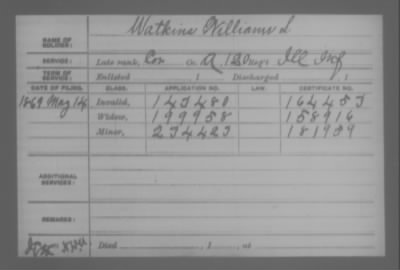 NAME OF SOLDIER: Watkins Williams S
SERVICE: Late rank, Cor Co. A, 120 Reg't Ill Inf
TERM OF SERVICE: Enlisted , 1 Discharged , 1
DATE OF FILING. CLASS. APPLICATION NO. LAW. CERTIFICATE NO.
1869 May 14 Invalid, 143480 164453
Widow, 199958 158916
Minor, 234423 181959
ADDITIONAL SERVICES:
REMARKS:
Died , 1 , at